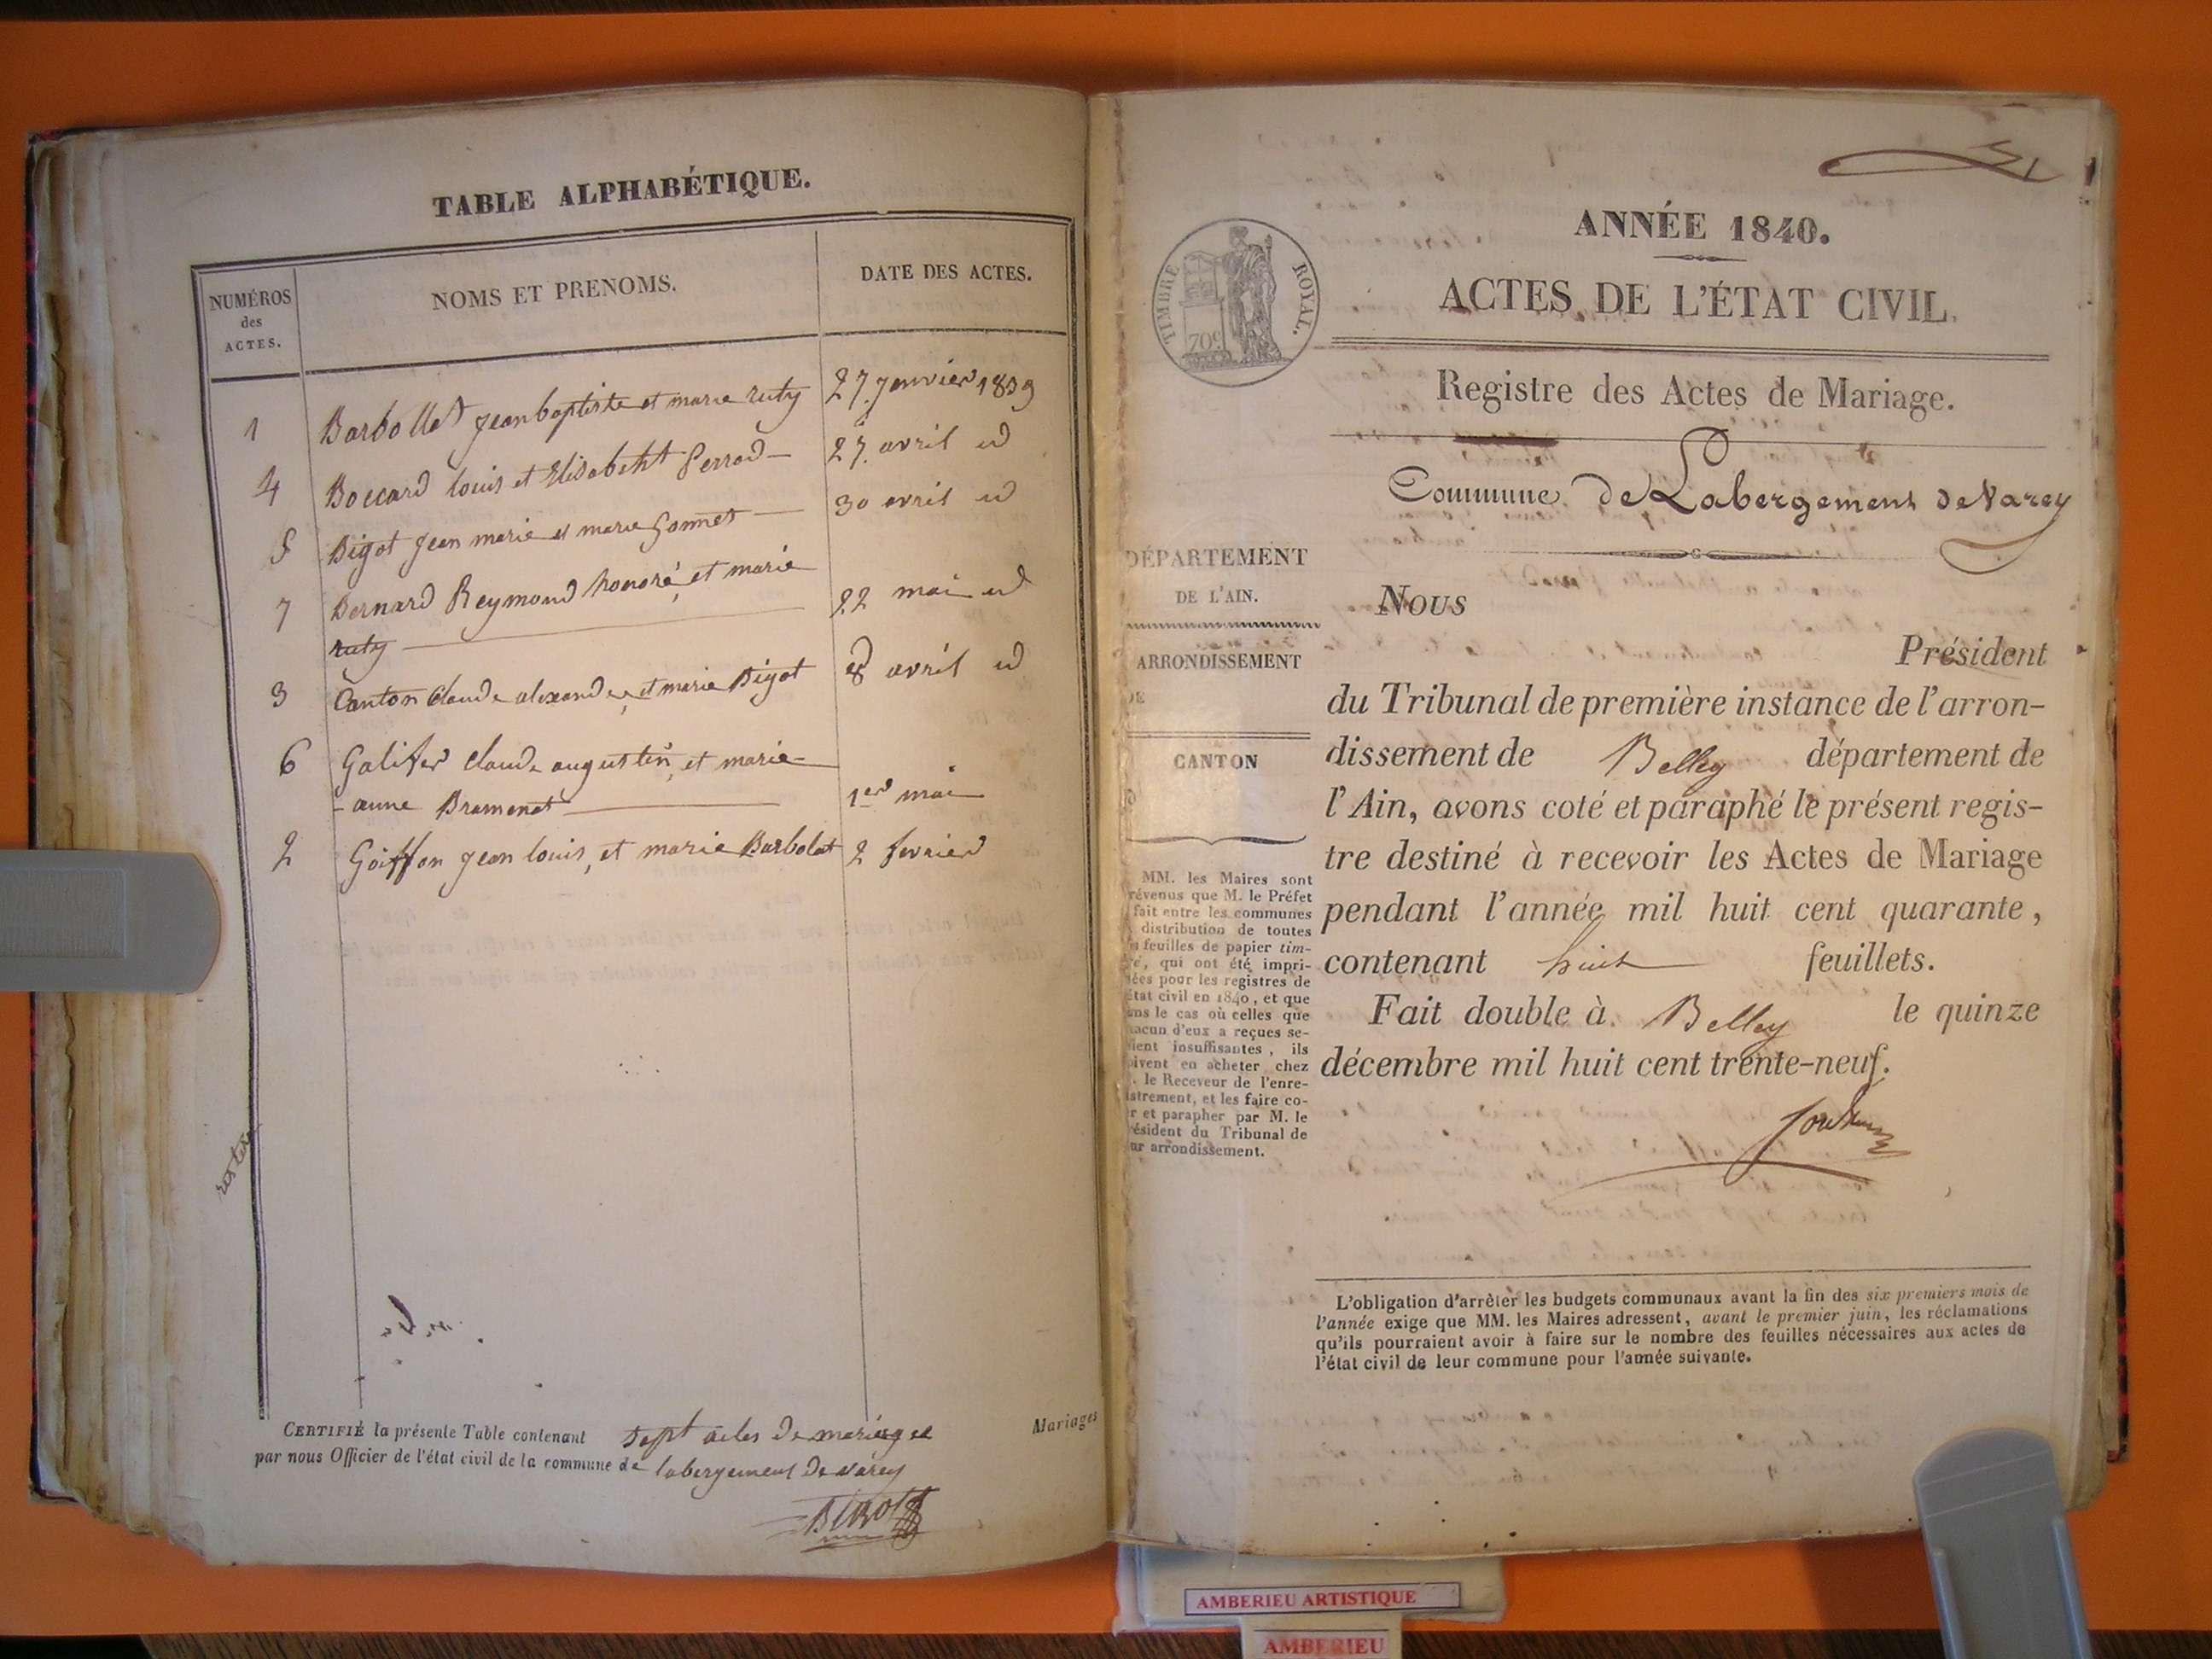 TABLE ALPHABÉTIQUE.
NUMÉROS
des
ACTES.
NOMS ET PRENOMS.
DATE DES ACTES.
1 Barbollat jean baptiste et marie ruty 27 janvier 1839
4 Boccard louis et Elisabeth Perrod 27 avril id
5 Bigot jean marie et marie Gonnet 30 avril id
7 Bernard Reymond honoré, et marie
ruty 22 mai id
3 Canton Claude alexandre, et marie Bigot 8 avril id
6 Galifer claude augustin, et marie
-anne Bramenet 1er mai
2 Goiffon jean louis, et marie Barbolat 2 fevrier
CERTIFIÉ la présente Table contenant sept actes de mariages Mariages
par nous Officier de l'état civil de la commune de labergement de varey
ANNÉE 1840.
ACTES DE L'ÉTAT CIVIL.
TIMBRE ROYAL.
70c
Registre des Actes de Mariage.
Commune de Labergement de Varey
DÉPARTEMENT
DE L'AIN.
ARRONDISSEMENT
DE
CANTON
MM. les Maires sont
révenus que M. le Préfet
fait entre les communes
distribution de toutes
feuilles de papier tim-
ré, qui ont été impri-
ées pour les registres de
état civil en 1840, et que
ans le cas où celles que
acun d'eux a reçues se-
ient insuffisantes, ils
oivent en acheter chez
. le Receveur de l'enre-
istrement, et les faire co-
r et parapher par M. le
résident du Tribunal de
ur arrondissement.
Nous
Président
du Tribunal de première instance de l'arron-
dissement de Belley département de
l'Ain, avons coté et paraphé le présent regis-
tre destiné à recevoir les Actes de Mariage
pendant l'année mil huit cent quarante,
contenant huit feuillets.
Fait double à Belley le quinze
décembre mil huit cent trente-neuf.
L'obligation d'arrêter les budgets communaux avant la fin des six premiers mois de
l'année exige que MM. les Maires adressent, avant le premier juin, les réclamations
qu'ils pourraient avoir à faire sur le nombre des feuilles nécessaires aux actes de
l'état civil de leur commune pour l'année suivante.
AMBERIEU ARTISTIQUE
AMBERIEU